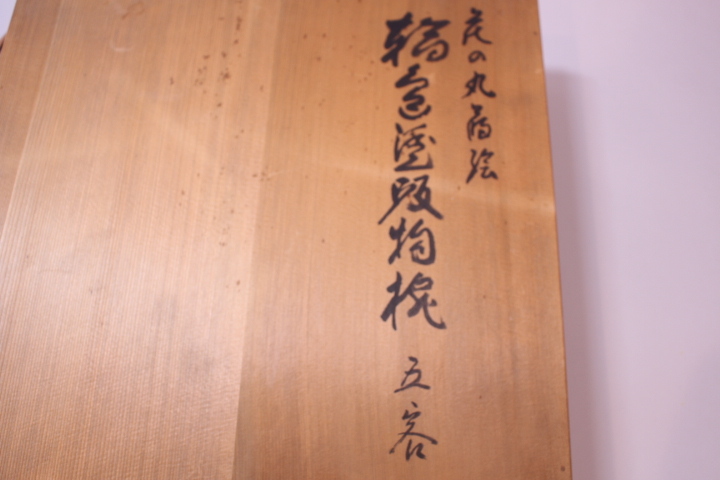 花の丸蒔絵
輪島塗吸物椀 五客